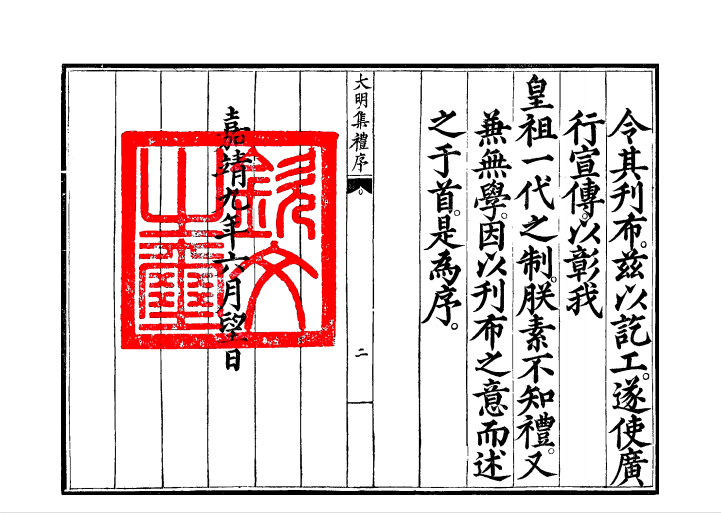 令其刋布。兹以訖工。遂使廣
行宣傳。以彰我
皇祖一代之制。朕素不知禮。又
蕪無學。因以刋布之意而述
之于首。是為序。
大明集禮序
二
嘉靖九年六月望日
欽文之璽